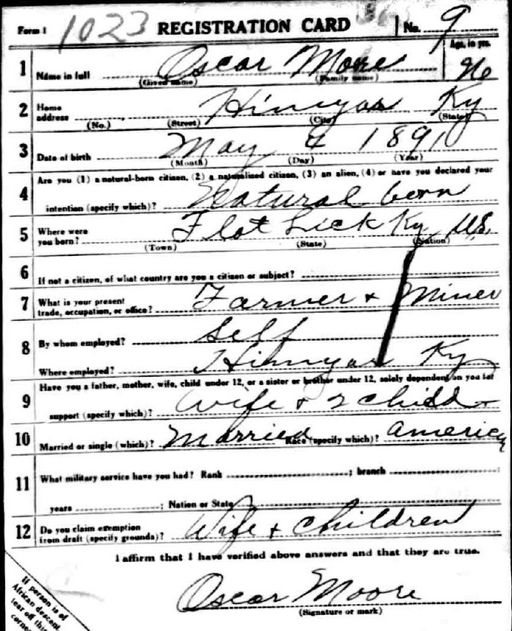 Form 1 1023 REGISTRATION CARD No. 9
1 Name in full Oscar Moore Age, in yrs.
(Given name) (Family name)
2 Home address Hinyar Ky
(No.) (Street) (City) (State)
3 Date of birth May 4 1891
(Month) (Day) (Year)
4 Are you (1) a natural-born citizen, (2) a naturalized citizen, (3) an alien, (4) or have you declared your
intention (specify which)? Natural born
5 Where were you born? Flat Lick Ky U.S.
(Town) (State) (Nation)
6 If not a citizen, of what country are you a citizen or subject?
7 What is your present trade, occupation, or office? Farmer + Miner
8 By whom employed? Self
Where employed? Hinyar Ky
9 Have you a father, mother, wife, child under 12, or a sister or brother under 12, solely dependent on you for
support (specify which)? Wife + 2 child
10 Married or single (which)? Married Race (specify which)? America
11 What military service have you had? Rank ; branch
years ; Nation or State
12 Do you claim exemption from draft (specify grounds)? Wife + Children
I affirm that I have verified above answers and that they are true.
Oscar Moore
(Signature or mark)
If person is of
African descent
tear off this
corner